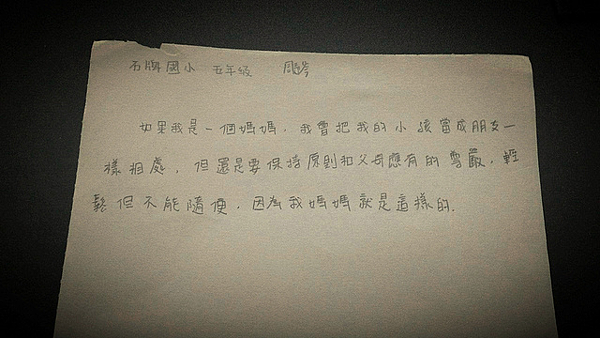 石牌國小 五年級
如果我是一個媽媽，我會把我的小孩當成朋友一
樣相處，但還是要保持原則和父母應有的尊嚴，輕
鬆但不能隨便，因為我媽媽就是這樣的.